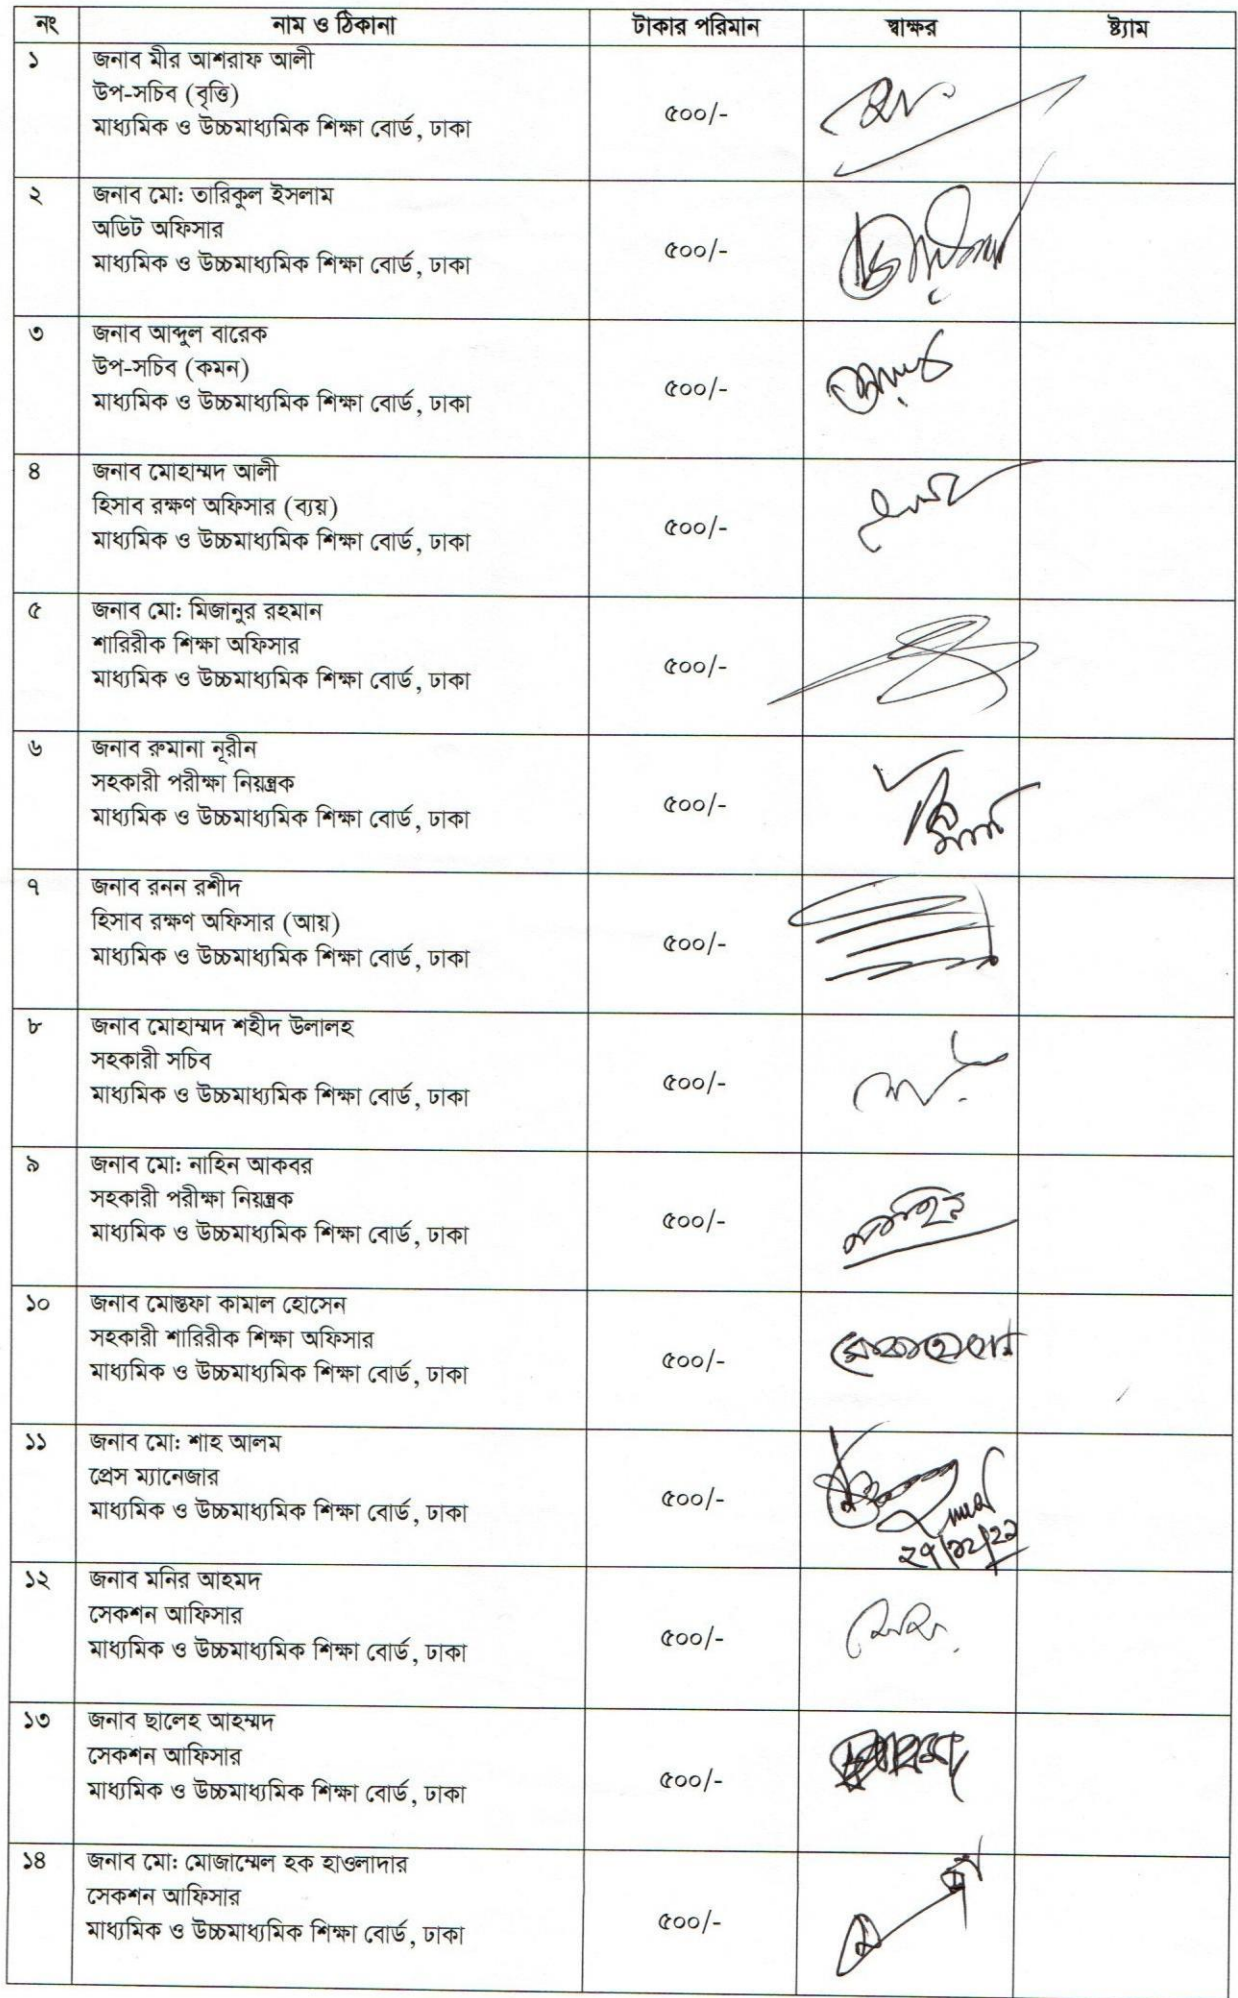 নং নাম ও ঠিকানা টাকার পরিমান স্বাক্ষর ষ্ট্যাম
১ জনাব মীর আশরাফ আলী
উপ-সচিব (বৃত্তি)
মাধ্যমিক ও উচ্চমাধ্যমিক শিক্ষা বোর্ড, ঢাকা ৫০০/-
২ জনাব মো: তারিকুল ইসলাম
অডিট অফিসার
মাধ্যমিক ও উচ্চমাধ্যমিক শিক্ষা বোর্ড, ঢাকা ৫০০/-
৩ জনাব আব্দুল বারেক
উপ-সচিব (কমন)
মাধ্যমিক ও উচ্চমাধ্যমিক শিক্ষা বোর্ড, ঢাকা ৫০০/-
৪ জনাব মোহাম্মদ আলী
হিসাব রক্ষণ অফিসার (ব্যয়)
মাধ্যমিক ও উচ্চমাধ্যমিক শিক্ষা বোর্ড, ঢাকা ৫০০/-
৫ জনাব মো: মিজানুর রহমান
শারিরীক শিক্ষা অফিসার
মাধ্যমিক ও উচ্চমাধ্যমিক শিক্ষা বোর্ড, ঢাকা ৫০০/-
৬ জনাব রুমানা নূরীন
সহকারী পরীক্ষা নিয়ন্ত্রক
মাধ্যমিক ও উচ্চমাধ্যমিক শিক্ষা বোর্ড, ঢাকা ৫০০/-
৭ জনাব রনন রশীদ
হিসাব রক্ষণ অফিসার (আয়)
মাধ্যমিক ও উচ্চমাধ্যমিক শিক্ষা বোর্ড, ঢাকা ৫০০/-
৮ জনাব মোহাম্মদ শহীদ উলালহ
সহকারী সচিব
মাধ্যমিক ও উচ্চমাধ্যমিক শিক্ষা বোর্ড, ঢাকা ৫০০/-
৯ জনাব মো: নাহিন আকবর
সহকারী পরীক্ষা নিয়ন্ত্রক
মাধ্যমিক ও উচ্চমাধ্যমিক শিক্ষা বোর্ড, ঢাকা ৫০০/-
১০ জনাব মোস্তফা কামাল হোসেন
সহকারী শারিরীক শিক্ষা অফিসার
মাধ্যমিক ও উচ্চমাধ্যমিক শিক্ষা বোর্ড, ঢাকা ৫০০/-
১১ জনাব মো: শাহ আলম
প্রেস ম্যানেজার
মাধ্যমিক ও উচ্চমাধ্যমিক শিক্ষা বোর্ড, ঢাকা ৫০০/-
১২ জনাব মনির আহমদ
সেকশন আফিসার
মাধ্যমিক ও উচ্চমাধ্যমিক শিক্ষা বোর্ড, ঢাকা ৫০০/-
১৩ জনাব ছালেহ আহম্মদ
সেকশন আফিসার
মাধ্যমিক ও উচ্চমাধ্যমিক শিক্ষা বোর্ড, ঢাকা ৫০০/-
১৪ জনাব মো: মোজাম্মেল হক হাওলাদার
সেকশন আফিসার
মাধ্যমিক ও উচ্চমাধ্যমিক শিক্ষা বোর্ড, ঢাকা ৫০০/-